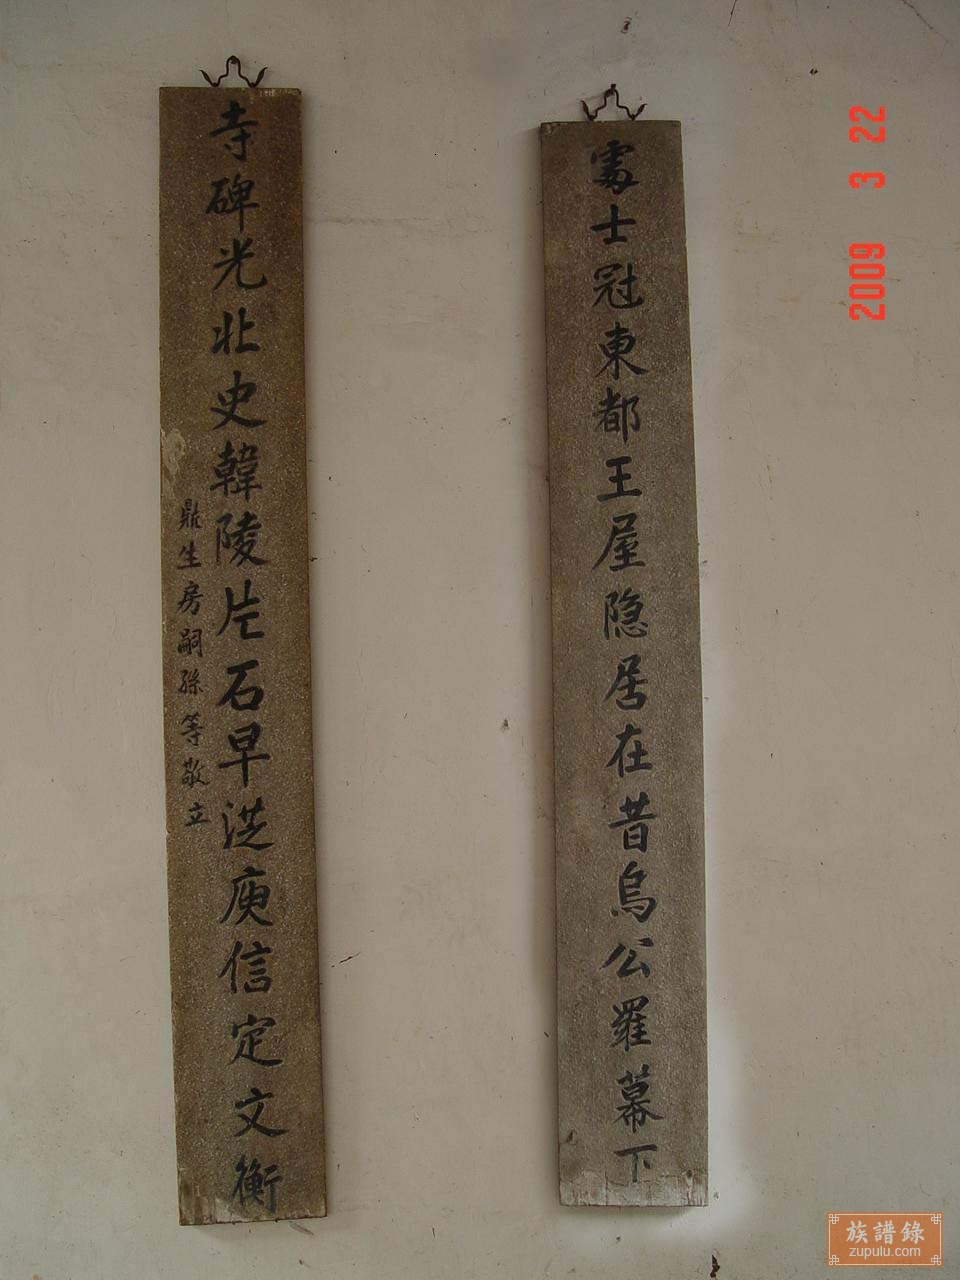 處士冠東都王屋隐居在昔烏公羅幕下
寺碑光北史韓陵片石早洪庾信定文衡
鼎生房嗣孫等敬立
2009 3 22
族譜錄
zupulu.com